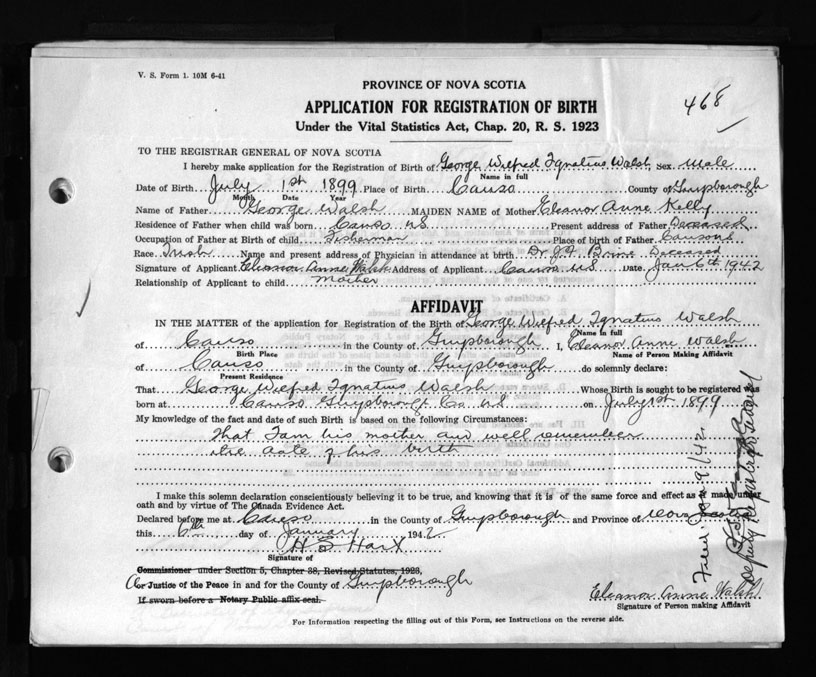 V. S. Form 1. 10M 6-41
468
PROVINCE OF NOVA SCOTIA
APPLICATION FOR REGISTRATION OF BIRTH
Under the Vital Statistics Act, Chap. 20, R. S. 1923
TO THE REGISTRAR GENERAL OF NOVA SCOTIA
I hereby make application for the Registration of Birth of George Wilfred Ignatius Walsh Sex Male
Name in full
Date of Birth July 1st 1899 Place of Birth Canso County of Guysborough
Month Date Year
Name of Father George Walsh MAIDEN NAME of Mother Eleanor Anne Kelly
Residence of Father when child was born Canso NS Present address of Father Deceased
Occupation of Father at Birth of child Fisherman Place of birth of Father Canso NS
Race Irish Name and present address of Physician in attendance at birth Dr. J. A. Deceased
Signature of Applicant Eleanor Anne Walsh Address of Applicant Canso N.S Date Jan 6th 1942
Relationship of Applicant to child mother
AFFIDAVIT
IN THE MATTER of the application for Registration of the Birth of George Wilfred Ignatius Walsh
Name in full
of Canso in the County of Guysborough I, Eleanor Anne Walsh
Birth Place Name of Person Making Affidavit
of Canso in the County of Guysborough do solemnly declare:
Present Residence
That George Wilfred Ignatius Walsh Whose Birth is sought to be registered was
born at Canso Guysborough Co. N.S on July 1st 1899
My knowledge of the fact and date of such Birth is based on the following Circumstances:
That I am his mother and well remember
the date of his birth
I make this solemn declaration conscientiously believing it to be true, and knowing that it is of the same force and effect as if made under
oath and by virtue of The Canada Evidence Act.
Declared before me at Canso in the County of Guysborough and Province of Nova Scotia
this 6th day of January 1942
H S Hart
Signature of
Commissioner under Section 5, Chapter 38, Revised Statutes, 1923,
(or Justice of the Peace in and for the County of Guysborough
If sworn before a Notary Public affix seal.
Eleanor Anne Walsh
Signature of Person making Affidavit
For Information respecting the filling out of this Form, see Instructions on the reverse side.
Filed Jan 9/42
Deputy Registrar General